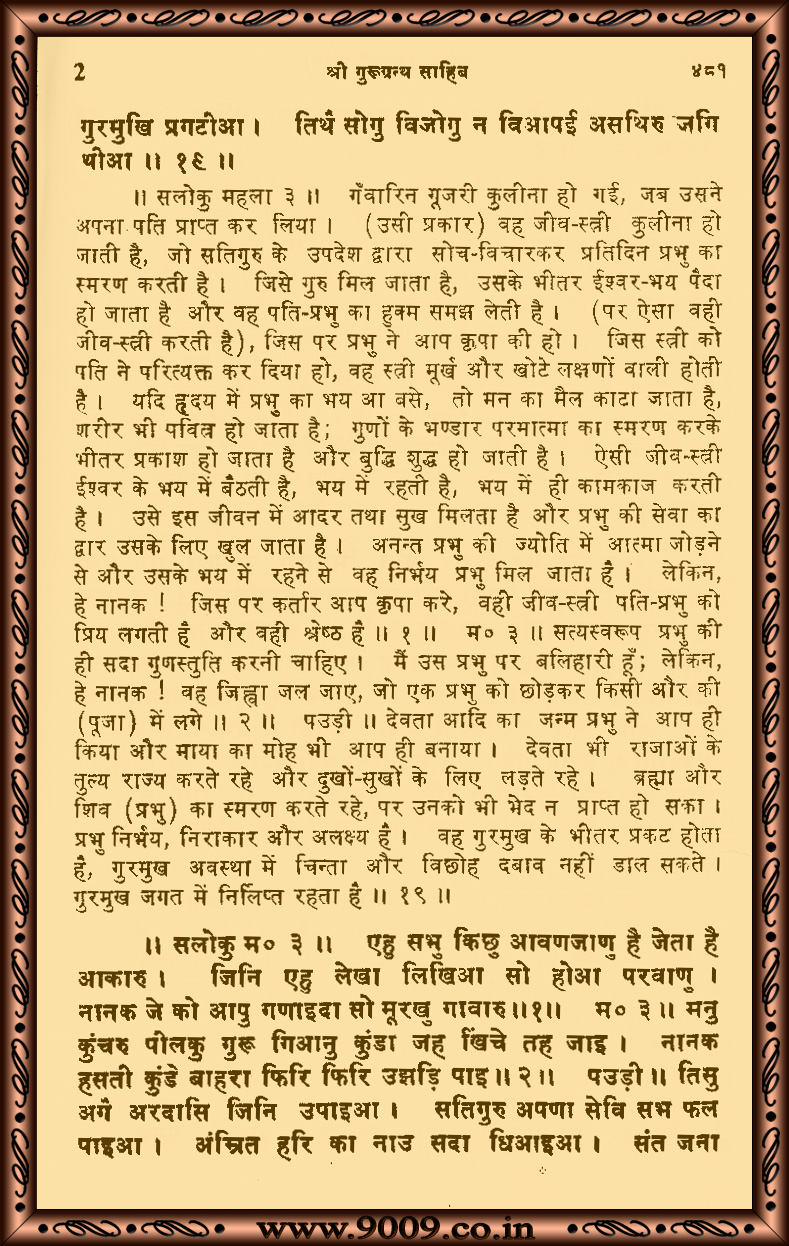 2 श्री गुरूग्रन्थ साहिब ४८१
गुरमुखि प्रगटीआ । तिथै सोगु विजोगु न विआपई असथिरु जगि
थीआ ॥ १९ ॥
॥ सलोकु महला ३ ॥ गँवारिन गूजरी कुलीना हो गई, जब उसने
अपना पति प्राप्त कर लिया । (उसी प्रकार) वह जीव-स्त्री कुलीना हो
जाती है, जो सतिगुरु के उपदेश द्वारा सोच-विचारकर प्रतिदिन प्रभु का
स्मरण करती है । जिसे गुरु मिल जाता है, उसके भीतर ईश्वर-भय पैदा
हो जाता है और वह पति-प्रभु का हुक्म समझ लेती है । (पर ऐसा वही
जीव-स्त्री करती है), जिस पर प्रभु ने आप कृपा की हो । जिस स्त्री को
पति ने परित्यक्त कर दिया हो, वह स्त्री मूर्ख और खोटे लक्षणों वाली होती
है । यदि हृदय में प्रभु का भय आ बसे, तो मन का मैल काटा जाता है,
शरीर भी पवित्र हो जाता है; गुणों के भण्डार परमात्मा का स्मरण करके
भीतर प्रकाश हो जाता है और बुद्धि शुद्ध हो जाती है । ऐसी जीव-स्त्री
ईश्वर के भय में बैठती है, भय में रहती है, भय में ही कामकाज करती
है । उसे इस जीवन में आदर तथा सुख मिलता है और प्रभु की सेवा का
द्वार उसके लिए खुल जाता है । अनन्त प्रभु की ज्योति में आत्मा जोड़ने
से और उसके भय में रहने से वह निर्भय प्रभु मिल जाता है । लेकिन,
हे नानक ! जिस पर कर्तार आप कृपा करे, वही जीव-स्त्री पति-प्रभु को
प्रिय लगती है और वही श्रेष्ठ है ॥ १ ॥ म० ३ ॥ सत्यस्वरूप प्रभु की
ही सदा गुणस्तुति करनी चाहिए । मैं उस प्रभु पर बलिहारी हूँ; लेकिन,
हे नानक ! वह जिह्वा जल जाए, जो एक प्रभु को छोड़कर किसी और की
(पूजा) में लगे ॥ २ ॥ पउड़ी ॥ देवता आदि का जन्म प्रभु ने आप ही
किया और माया का मोह भी आप ही बनाया । देवता भी राजाओं के
तुल्य राज्य करते रहे और दुखों-सुखों के लिए लड़ते रहे । ब्रह्मा और
शिव (प्रभु) का स्मरण करते रहे, पर उनको भी भेद न प्राप्त हो सका ।
प्रभु निर्भय, निराकार और अलक्ष्य है । वह गुरमुख के भीतर प्रकट होता
है, गुरमुख अवस्था में चिन्ता और विछोह दबाव नहीं डाल सकते ।
गुरमुख जगत में निर्लिप्त रहता है ॥ १९ ॥
॥ सलोकु म० ३ ॥ एहु सभु किछु आवणजाणु है जेता है
आकारु । जिनि एहु लेखा लिखिआ सो होआ परवाणु ।
नानक जे को आपु गणाइदा सो मूरखु गावारु ॥१॥ म० ३ ॥ मनु
कुंचरु पीलकु गुरू गिआनु कुंडा जह खिंचे तह जाइ । नानक
हसती कुंडे बाहरा फिरि फिरि उझड़ि पाइ ॥ २ ॥ पउड़ी ॥ तिसु
अगै अरदासि जिनि उपाइआ । सतिगुरु अपणा सेवि सभ फल
पाइआ । अंम्रित हरि का नाउ सदा धिआइआ । संत जना
www.9009.co.in